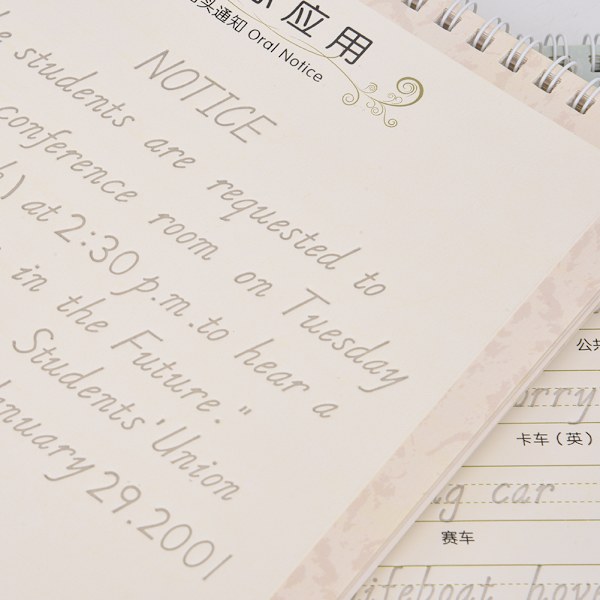 应用
头通知 Oral Notice
NOTICE
students are requested to
conference room on Tuesday
) at 2:30 p.m.to hear a
in the Future."
Students' Union
29.2001
卡车（英）
car
赛车